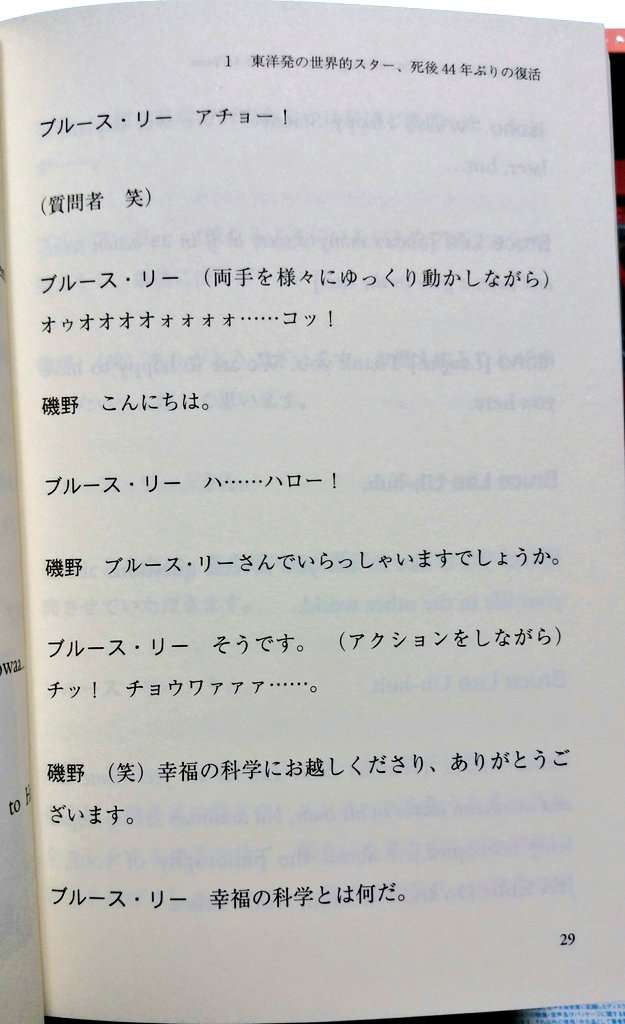 1　東洋発の世界的スター、死後44年ぶりの復活
ブルース・リー　アチョー！
（質問者　笑）
ブルース・リー　（両手を様々にゆっくり動かしながら）
オゥオオオオォォォォ……コッ！
磯野　こんにちは。
ブルース・リー　ハ……ハロー！
磯野　ブルース・リーさんでいらっしゃいますでしょうか。
ブルース・リー　そうです。（アクションをしながら）
チッ！　チョウワァァァ……。
磯野　（笑）幸福の科学にお越しくださり、ありがとうご
ざいます。
ブルース・リー　幸福の科学とは何だ。
29